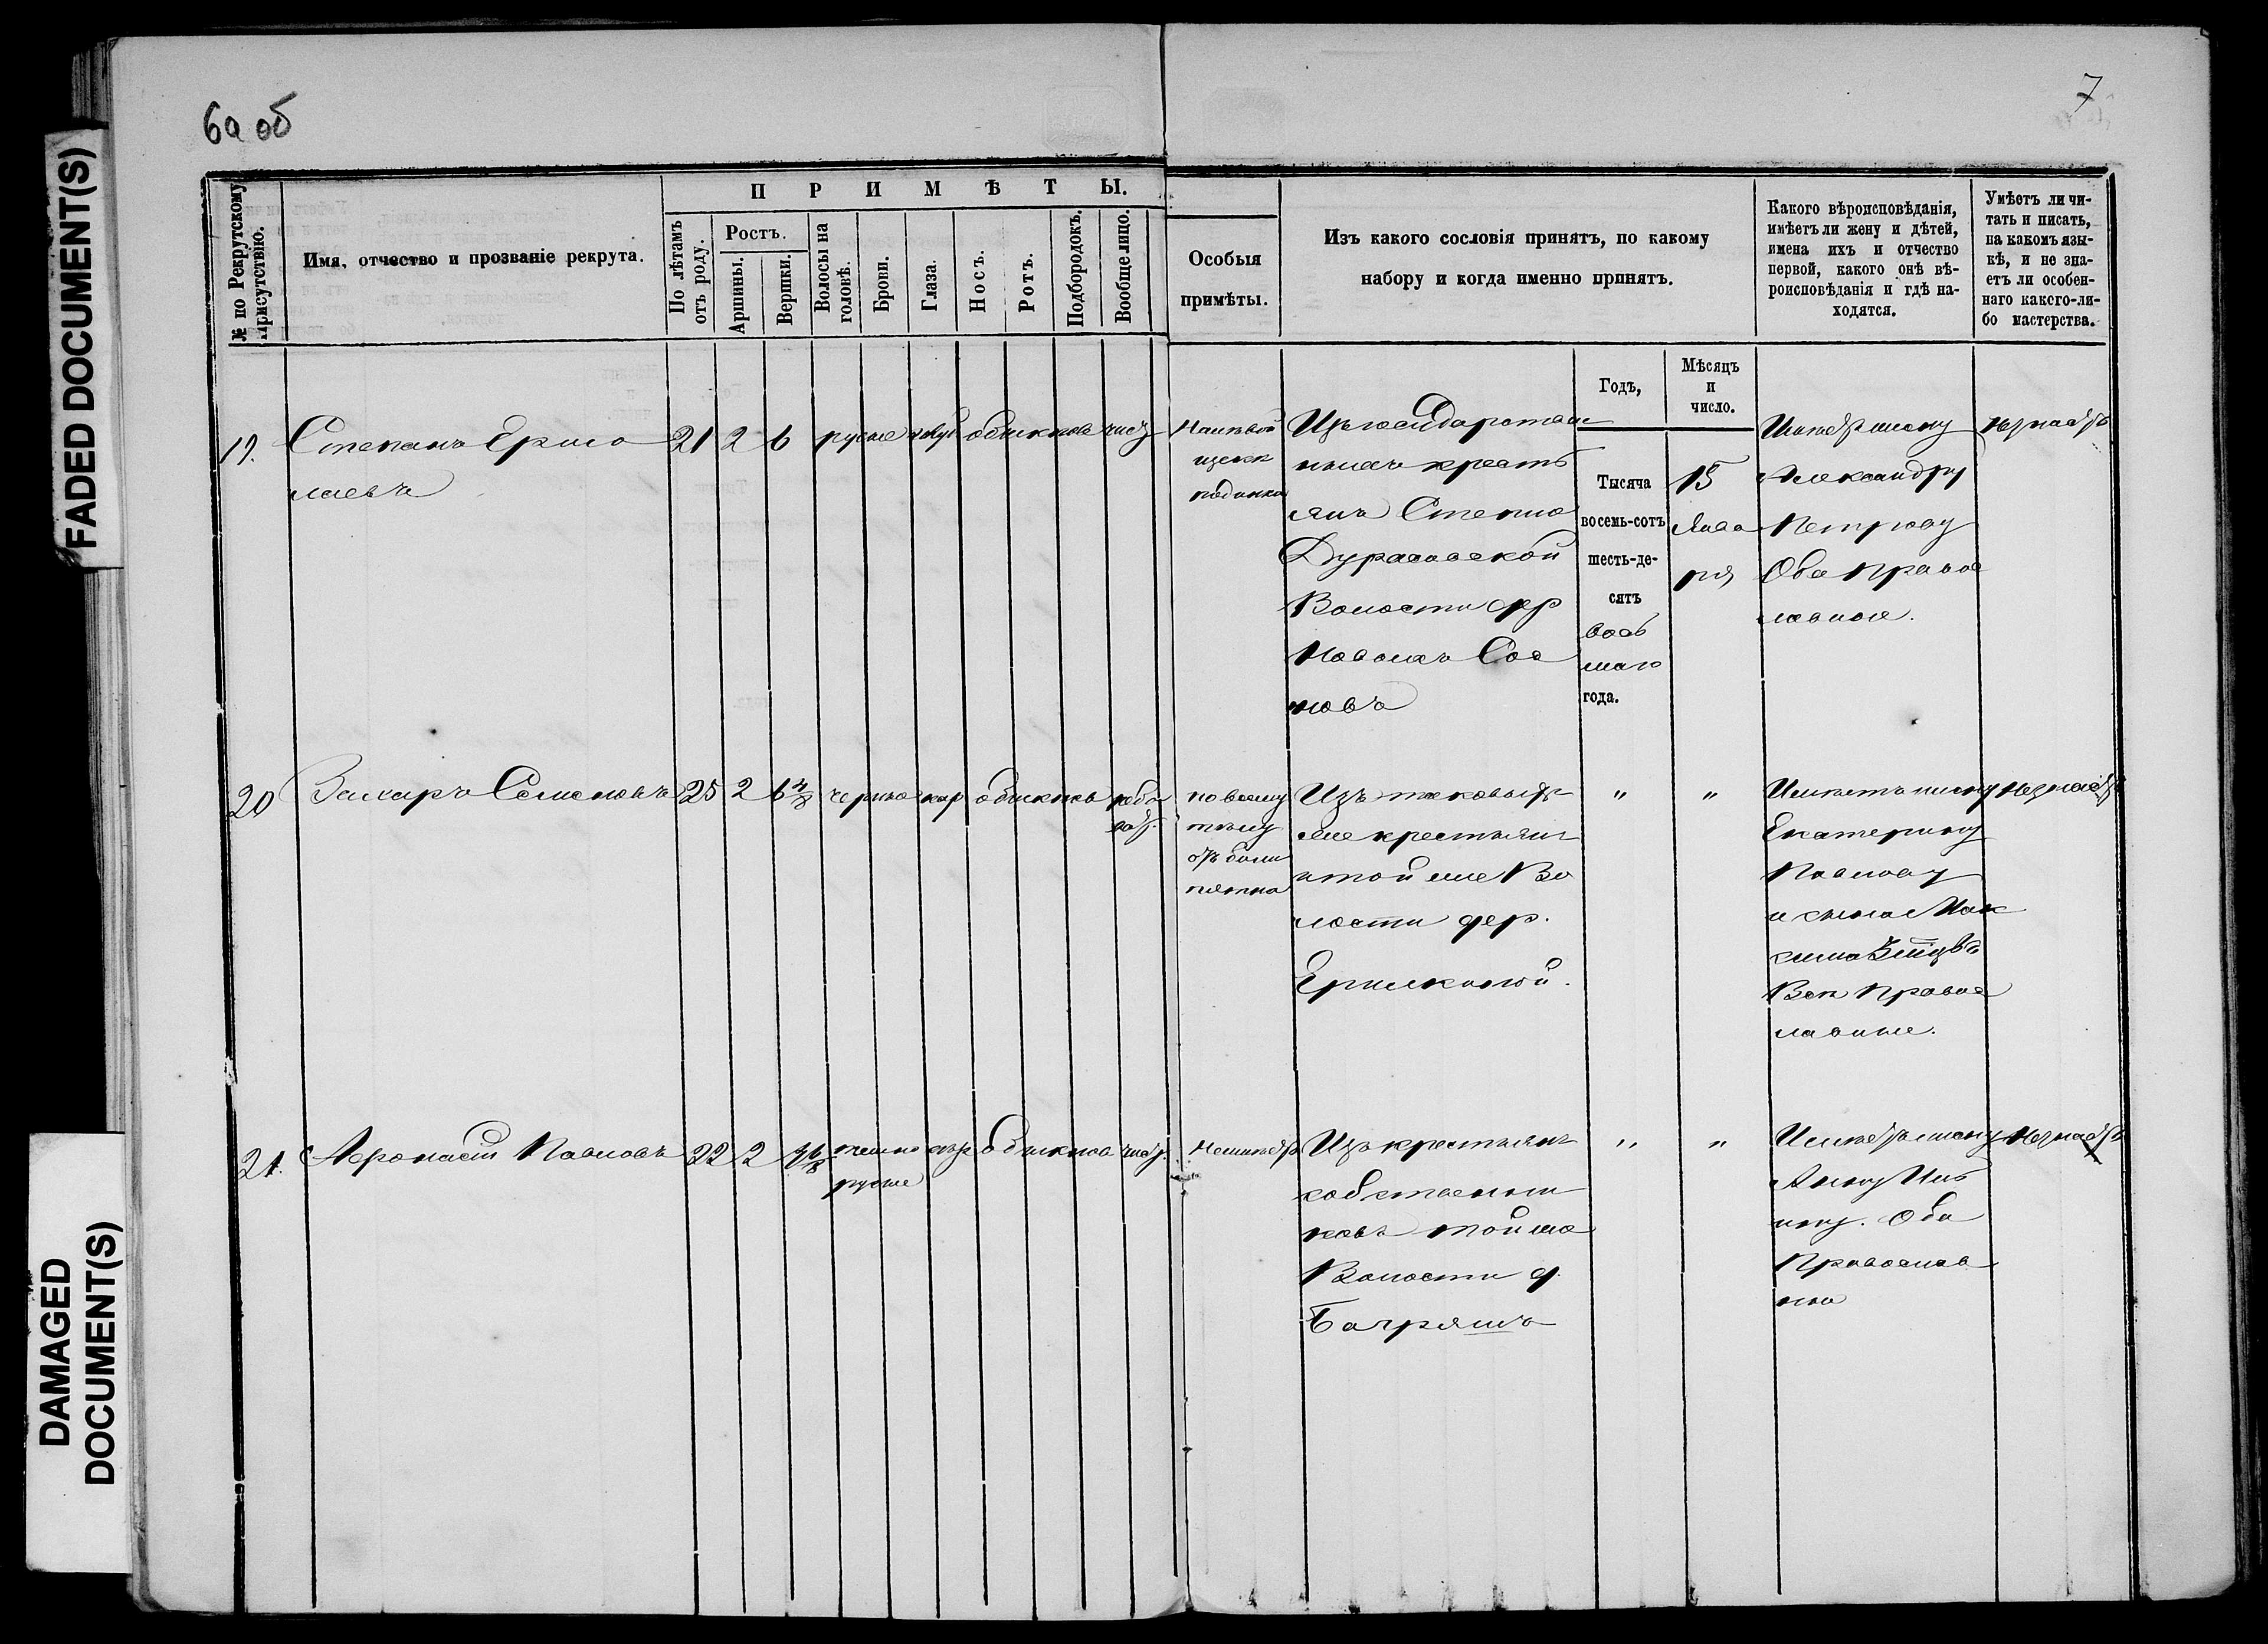 FADED DOCUMENT(S)
DAMAGED
DOCUMENT(S)
6а об
7
№ по Рекрутскому
присутствію.
Имя, отчество и прозваніе рекрута.
ПРИМѢТЫ.
По лѣтамъ
отъ роду.
Ростъ.
Аршины.
Вершки.
Волосы на
головѣ.
Брови.
Глаза.
Носъ.
Ротъ.
Подбородокъ.
Вообще лицо.
Особыя
примѣты.
Изъ какого сословія принятъ, по какому
набору и когда именно принятъ.
Какого вѣроисповѣданія,
имѣетъ ли жену и дѣтей,
имена ихъ и отчество
первой, какого онѣ вѣ-
роисповѣданія и гдѣ на-
ходятся.
Умѣетъ ли чи-
тать и писать,
на какомъ язы-
кѣ, и не зна-
етъ ли особен-
наго какого-ли-
бо мастерства.
Годъ,
Мѣсяцъ
и
число.
19.
Степанъ Ермо
лаевъ
21 2 6 русые обыкнов чист
На левой
щеке
родинка
Изъ государствен
ныхъ кресть
янъ Степно
Дурасовской
Волости дер
Новыхъ Сос
новъ
Тысяча
восемь-сотъ
шесть-де-
сятъ
вось
маго
года.
15
Янва
ря
Имеетъ жену
Александру
Петрову
Оба правос
лавные.
незнаетъ
20
Захаръ Семеновъ
25 2 6 4/8 черные кар обыкнов рябо
ват.
по всему
телу
отъ
пятна
Изъ таковыхъ
же крестьян
и той же Во
лости дер.
" "
Имеетъ жену
Екатерину
Павлову
и сына Мак
сима
Все правос
лавные.
незнаетъ
21.
Афонасій Павловъ
22 2 темно сер обыкнов чист.
русые
Неимеетъ
Изъ крестьянъ
собственни
ковъ той же
Волости д.
Багряшъ
" "
Имеетъ жену
Анну Иль
ину. Оба
Православ
ны
незнаетъ